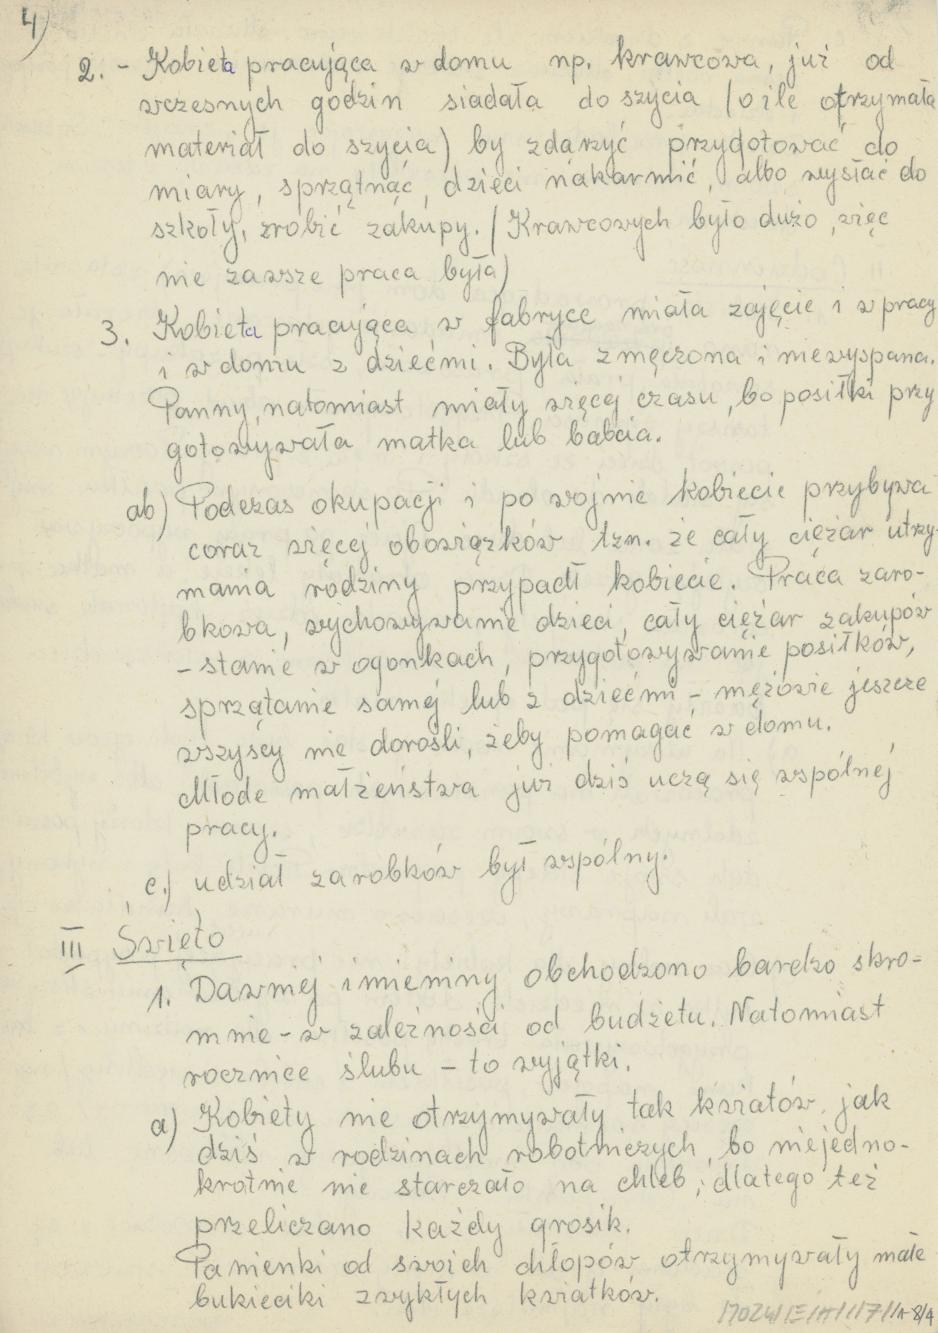 4)
2. - Kobieta pracująca w domu np. krawcowa, już od
wczesnych godzin siadała do szycia (o ile otrzymała
materiał do szycia) by zdążyć przygotować do
miary, sprzątnąć, dzieci nakarmić, albo wysłać do
szkoły, zrobić zakupy. (Krawcowych było dużo, więc
nie zawsze praca była)
3. Kobieta pracująca w fabryce miała zajęcie i w pracy
i w domu z dziećmi. Była zmęczona i niewyspana.
Panny, natomiast miały więcej czasu, bo posiłki przy
gotowywała matka lub babcia.
ab) Podczas okupacji i po wojnie kobiecie przybywa
coraz więcej obowiązków tzn. że cały ciężar utrzy-
mania rodziny przypadł kobiecie. Praca zaro-
bkowa, wychowywanie dzieci, cały ciężar zakupów
- stanie w ogonkach, przygotowywanie posiłków,
sprzątanie samej lub z dziećmi - mężowie jeszcze
wszyscy nie dorośli, żeby pomagać w domu.
Młode małżeństwa już dziś uczą się wspólnej
pracy.
c.) udział zarobków był wspólny.
III Święto
1. Dawniej imieniny obchodzono bardzo skro-
mnie - w zależności od budżetu. Natomiast
rocznice ślubu - to wyjątki.
a) Kobiety nie otrzymywały tak kwiatów jak
dziś w rodzinach robotniczych, bo niejedno-
krotnie nie starczało na chleb, dlatego też
przeliczano każdy grosik.
Panienki od swoich chłopów otrzymywały małe
bukieciki zwykłych kwiatków.